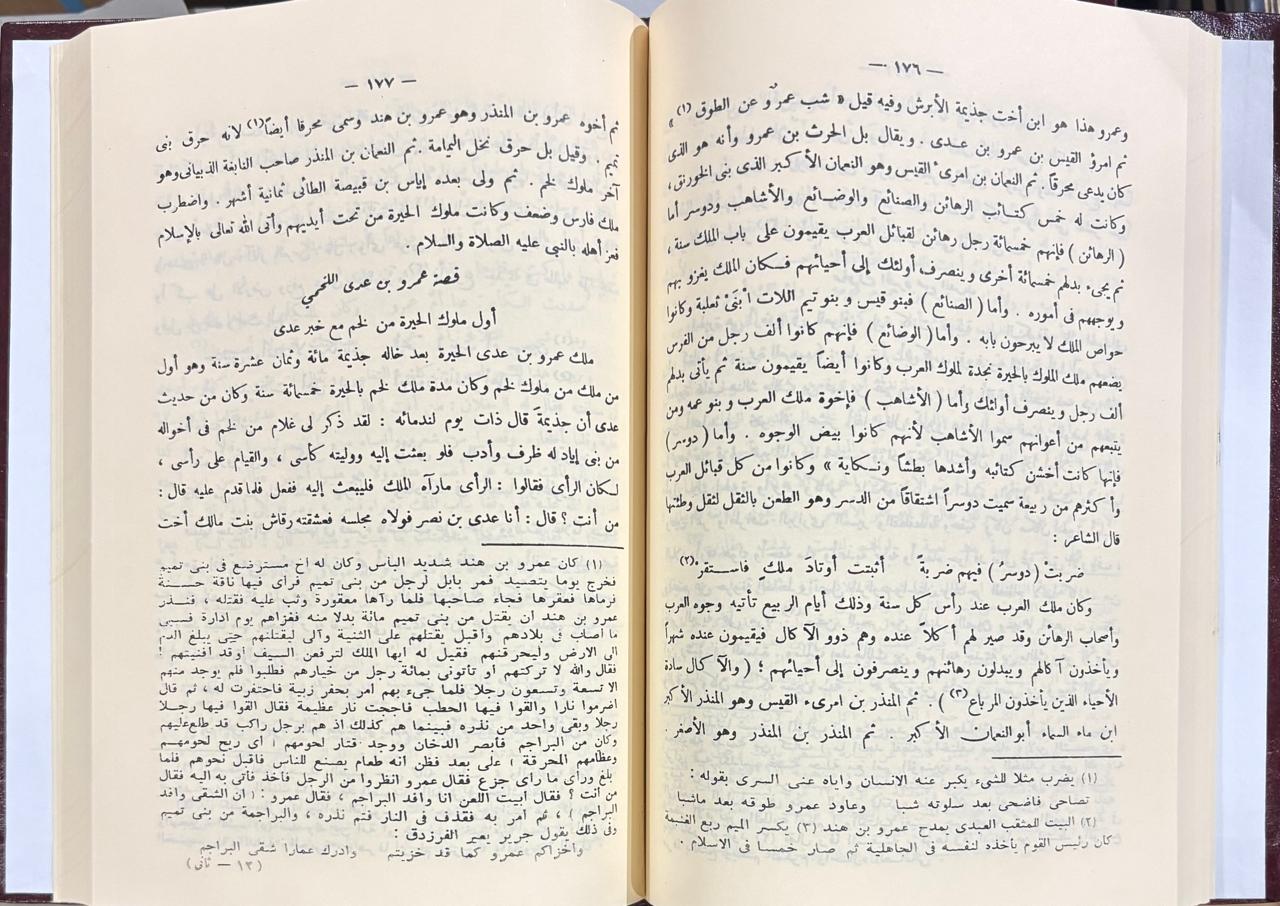 — ١٧٦ —
وعمرو هذا هو ابن أخت جذيمة الأبرش وفيه قيل « شب عمرٌو عن الطوق (١) »
ثم امرؤ القيس بن عمرو بن عدى . ويقال بل الحرث بن عمرو وأنه هو الذى
كان يدعى محرقاً . ثم النعمان بن امرئ القيس وهو النعمان الأكبر الذى بنى الخورنق ،
وكانت له خمس كتائب الرهائن والصنائع والوضائع والأشاهب ودوسر أما
( الرهائن ) فإنهم خمسمائة رجل رهائن لقبائل العرب يقيمون على باب الملك سنة ،
ثم يجىء بدلهم خمسمائة أخرى وينصرف أولئك إلى أحيائهم فكان الملك يغزو بهم
ويوجههم فى أموره . وأما ( الصنائع ) فبنو قيس وبنو تيم اللات ابْنَىْ ثعلبة وكانوا
خواص الملك لا يبرحون بابه . وأما ( الوضائع ) فإنهم كانوا ألف رجل من الفرس
يضعهم ملك الملوك بالحيرة نجدة لملوك العرب وكانوا أيضاً يقيمون سنة ثم يأتى بدلهم
ألف رجل وينصرف أولئك وأما ( الأشاهب ) فإخوة ملك العرب وبنو عمه ومن
يتبعهم من أعوانهم سموا الأشاهب لأنهم كانوا بيض الوجوه . وأما ( دوسر )
فإنها كانت أخشن كتائبه وأشدها بطشاً ونكاية » وكانوا من كل قبائل العرب
وأكثرهم من ربيعة سميت دوسراً اشتقاقاً من الدسر وهو الطعن بالثقل لثقل وطئتها
قال الشاعر :
ضربتْ ( دوسرُ ) فيهم ضربةً أثبتت أوتادَ ملكٍ فاستقر (٢)
وكان ملك العرب عند رأس كل سنة وذلك أيام الربيع تأتيه وجوه العرب
وأصحاب الرهائن وقد صير لهم أكلاً عنده وهم ذوو الآكال فيقيمون عنده شهراً
ويأخذون آكالهم ويبدلون رهائنهم وينصرفون إلى أحيائهم ؛ ( والآكال سادة
الأحياء الذين يأخذون المرباع (٣) ) . ثم المنذر بن امرىء القيس وهو المنذر الأكبر
ابن ماء السماء أبو النعمان الأكبر . ثم المنذر بن المنذر وهو الأصغر .
(١) يضرب مثلا للشىء يكبر عنه الانسان واياه عنى السرى بقوله :
تصاحى فاضحى بعد سلوته شبا وعاود عمرو طوقه بعد ماشبا
(٢) البيت للمثقب العبدى يمدح عمرو بن هند (٣) يكسر الميم ربع الغنيمة
كان رئيس القوم يأخذه لنفسه فى الجاهلية ثم صار خمسا فى الاسلام .
— ١٧٧ —
ثم أخوه عمرو بن المنذر وهو عمرو بن هند وسمى محرقا أيضاً (١) لأنه حرق بنى
تميم . وقيل بل حرق نخل اليمامة . ثم النعمان بن المنذر صاحب النابغة الذبيانى وهو
آخر ملوك لخم . ثم ولى بعده إياس بن قبيصة الطائى ثمانية أشهر . واضطرب
ملك فارس وضعف وكانت ملوك الحيرة من تحت أيديهم وأتى الله تعالى بالإسلام
فعز أهله بالنبي عليه الصلاة والسلام .
قصة عمرو بن عدى اللخمي
أول ملوك الحيرة من لخم مع خبر عدى
ملك عمرو بن عدى الحيرة بعد خاله جذيمة مائة وثمان عشرة سنة وهو أول
من ملك من ملوك لخم وكان مدة ملك لخم بالحيرة خمسمائة سنة وكان من حديث
عدى أن جذيمةَ قال ذات يوم لندمائه : لقد ذكر لى غلام من لخم فى أخواله
من بنى إياد له ظرف وأدب فلو بعثت إليه ووليته كأسى ، والقيام على رأسى ،
لكان الرأى فقالوا : الرأى مارآه الملك فليبعث إليه ففعل فلما قدم عليه قال :
من أنت ؟ قال : أنا عدى بن نصر فولاه مجلسه فعشقته رقاش بنت مالك أخت
(١) كان عمرو بن هند شديد الباس وكان له اخ مسترضع فى بنى تميم
فخرج يوما يتصيد فمر بابل لرجل من بنى تميم فرأى فيها ناقة حسنة
فرماها فعقرها فجاء صاحبها فلما رآها معقورة وثب عليه فقتله ، فنذر
عمرو بن هند ان يقتل من بنى تميم مائة بدلا منه فغزاهم يوم ادارة فسبى
ما اصاب فى بلادهم واقبل يقتلهم على الثنية وآلى ليقتلنهم حتى يبلغ الدم
الى الارض وليحرقنهم فقيل له ايها الملك لترفعن السيف اوقد افنيتهم !
فقال والله لا تركتهم او تأتونى بمائة رجل من خيارهم فطلبوا فلم يوجد منهم
الا تسعة وتسعون رجلا فلما جىء بهم امر بحفر زبية فاحتفرت له ، ثم قال
اضرموا نارا والقوا فيها الحطب فاججت نار عظيمة فقال القوا فيها رجلا
رجلا وبقى واحد من نذره فبينما هم كذلك اذ هم برجل راكب قد طلع عليهم
وكان من البراجم فأبصر الدخان ووجد قتار لحومهم ( اى ريح لحومهم
وعظامهم المحرقة ) على بعد فظن انه طعام يصنع للناس فاقبل نحوهم فلما
بلغ ورأى ما رأى جزع فقال عمرو انظروا من الرجل فأخذ فأتى به اليه فقال
من انت ؟ فقال ابيت اللعن انا وافد البراجم ، فقال عمرو : ( ان الشقى وافد
البراجم ) ، ثم امر به فقذف فى النار فتم نذره ، والبراجمة من بنى تميم
وفى ذلك يقول جرير يعير الفرزدق :
واخزاكم عمرو كما قد خزيتم وادرك عمارا شقى البراجم
( ١٢ — ثانى )